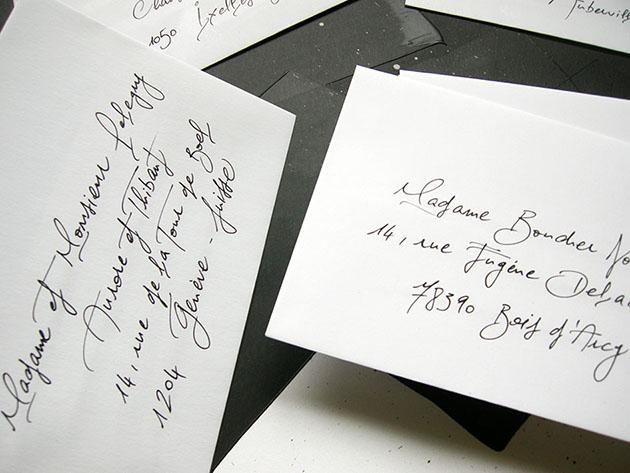 1050 Ixelles
Madame et Monsieur
Aurore et Thibaut
14, rue de la Tour de Boël
1204 Genève - Suisse
Madame Boucher
14, rue Eugène
78390 Bois d'Arcy